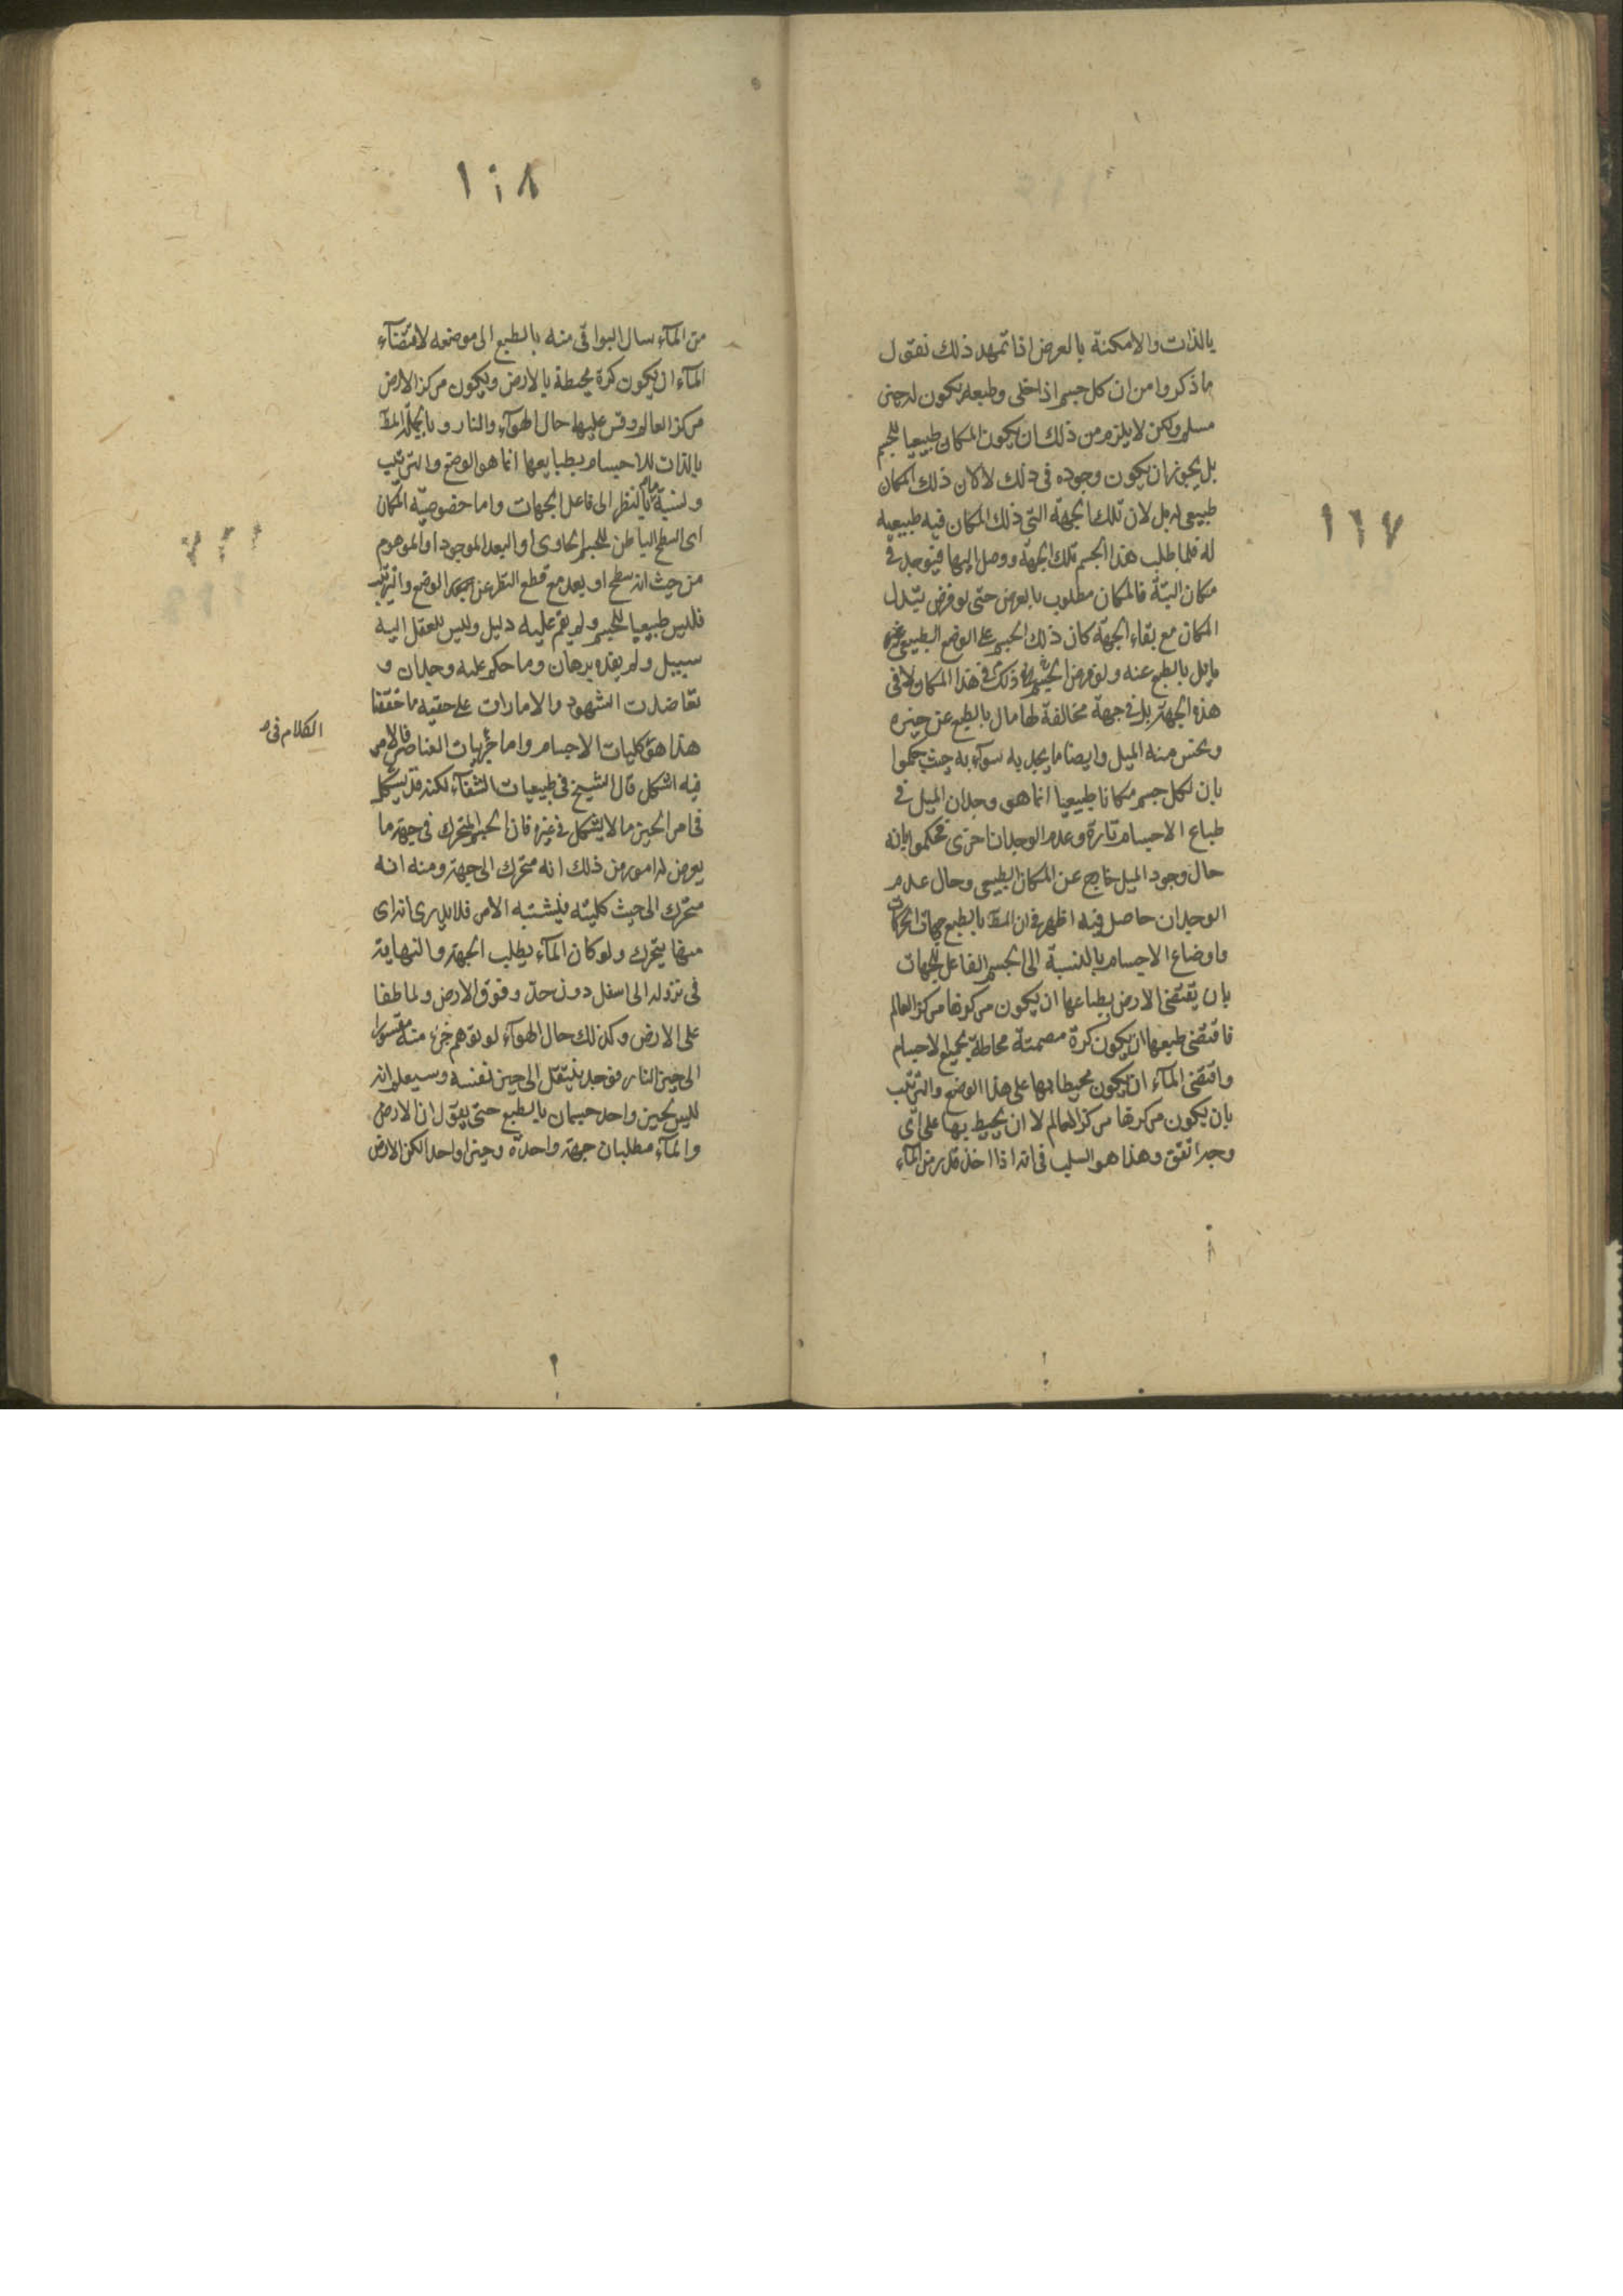 ١٦٧
بالذات والامكنة بالعرض اذا تمهد ذلك نقول
ما ذكروا من ان كل جسم اذا خلى وطبعه يكون له حيز
مسلم ولكن لا يلزم من ذلك ان يكون المكان طبيعيا للجسم
بل يجوز ان يكون وجوده فى ذلك لا لان ذلك المكان
طبيعى له بل لان تلك الجهة التى ذلك المكان فيه طبيعية
له فلما طلب هذا الجسم تلك الجهة ووصل اليها فيوجد فى
مكان البتة فالمكان مطلوب بالعرض حتى لو فرض تبدل
المكان مع بقاء الجهة كان ذلك الجسم على الوضع الطبيعى غير
مايل بالطبع عنه ولو فرض الجسم فى هذا المكان لا فى
هذه الجهة بل فى جهة مخالفة لها مال بالطبع عن حيزه
ويحس منه الميل وايضا ما يجديه سواء به حيث حكموا
بان لكل جسم مكانا طبيعيا انما هو وجدان الميل فى
طباع الاجسام تارة وعدم الوجدان اخرى فحكموا بانه
حال وجود الميل خارج عن المكان الطبيعى وحال عدم
الوجدان حاصل فيه اظهر فى ان المط بالطبع جهات الحركات
واوضاع الاجسام بالنسبة الى الجسم الفاعل للجهات
بان يقتضى الارض بطباعها ان يكون مركزها مركز العالم
فاقتضى طبعها ان يكون كرة مصمتة محاطة بجميع الاجسام
واقتضى المآء ان يكون محيطا بها على هذا الوضع والترتيب
بان يكون مركزها مركز العالم لا ان يحيط بها على اى
وجه اتفق وهذا هو السلب فى انه اذا اخذ قدر من المآء
١٦٨
من المآء سال البواقى منه بالطبع الى موضعه لاقتضآء
المآء ان يكون كرة محيطة بالارض ويكون مركز الارض
مركز العالم وقس عليها حال الهوآء والنار وبالجملة المط
بالذات للاجسام بطبايعها انما هو الوضع والترتيب
ونسبة ما بالنظر الى فاعل الجهات واما خصوصية المكان
اى السطح الباطن للجسم الحاوى او البعد الموجود او الموهوم
من حيث انه سطح او بعد مع قطع النظر عن الوضع والترتيب
فليس طبيعيا للجسم ولم يقم عليه دليل وليس للعقل اليه
سبيل ولم يقده برهان وما حكم عليه وجدان و
تعاضدت الشهود والامارات على حقيه ما حققنا
هذا هو كليات الاجسام واما جزئيات العناصر فالامر
الكلام فى
فيه اشكل قال الشيخ فى طبيعيات الشفآء لكنه قد يشكل
فى امر الحيز ما لا يشكل فى غيره فان الجسم المتحرك فى جهة ما
يعرض له امور من ذلك انه متحرك الى جهة ومنه انه
متحرك الى حيث كليته فيشتبه الامر فلا يدرى انه اى
منها يتحرك ولو كان المآء يطلب الجهة والنهاية
فى نزوله الى اسفل دون حد وفوق الارض ولما طفا
على الارض وكذلك حال الهوآء لو توهم جزء منه مقسورا
الى حيز النار فوجد ينتقل الى حيز نفسه وسيعلم انه
ليس لحيز واحد جسمان بالطبع حتى يقول ان الارض
والمآء مطلبان جهة واحدة وحيزا واحدا لكن الارض